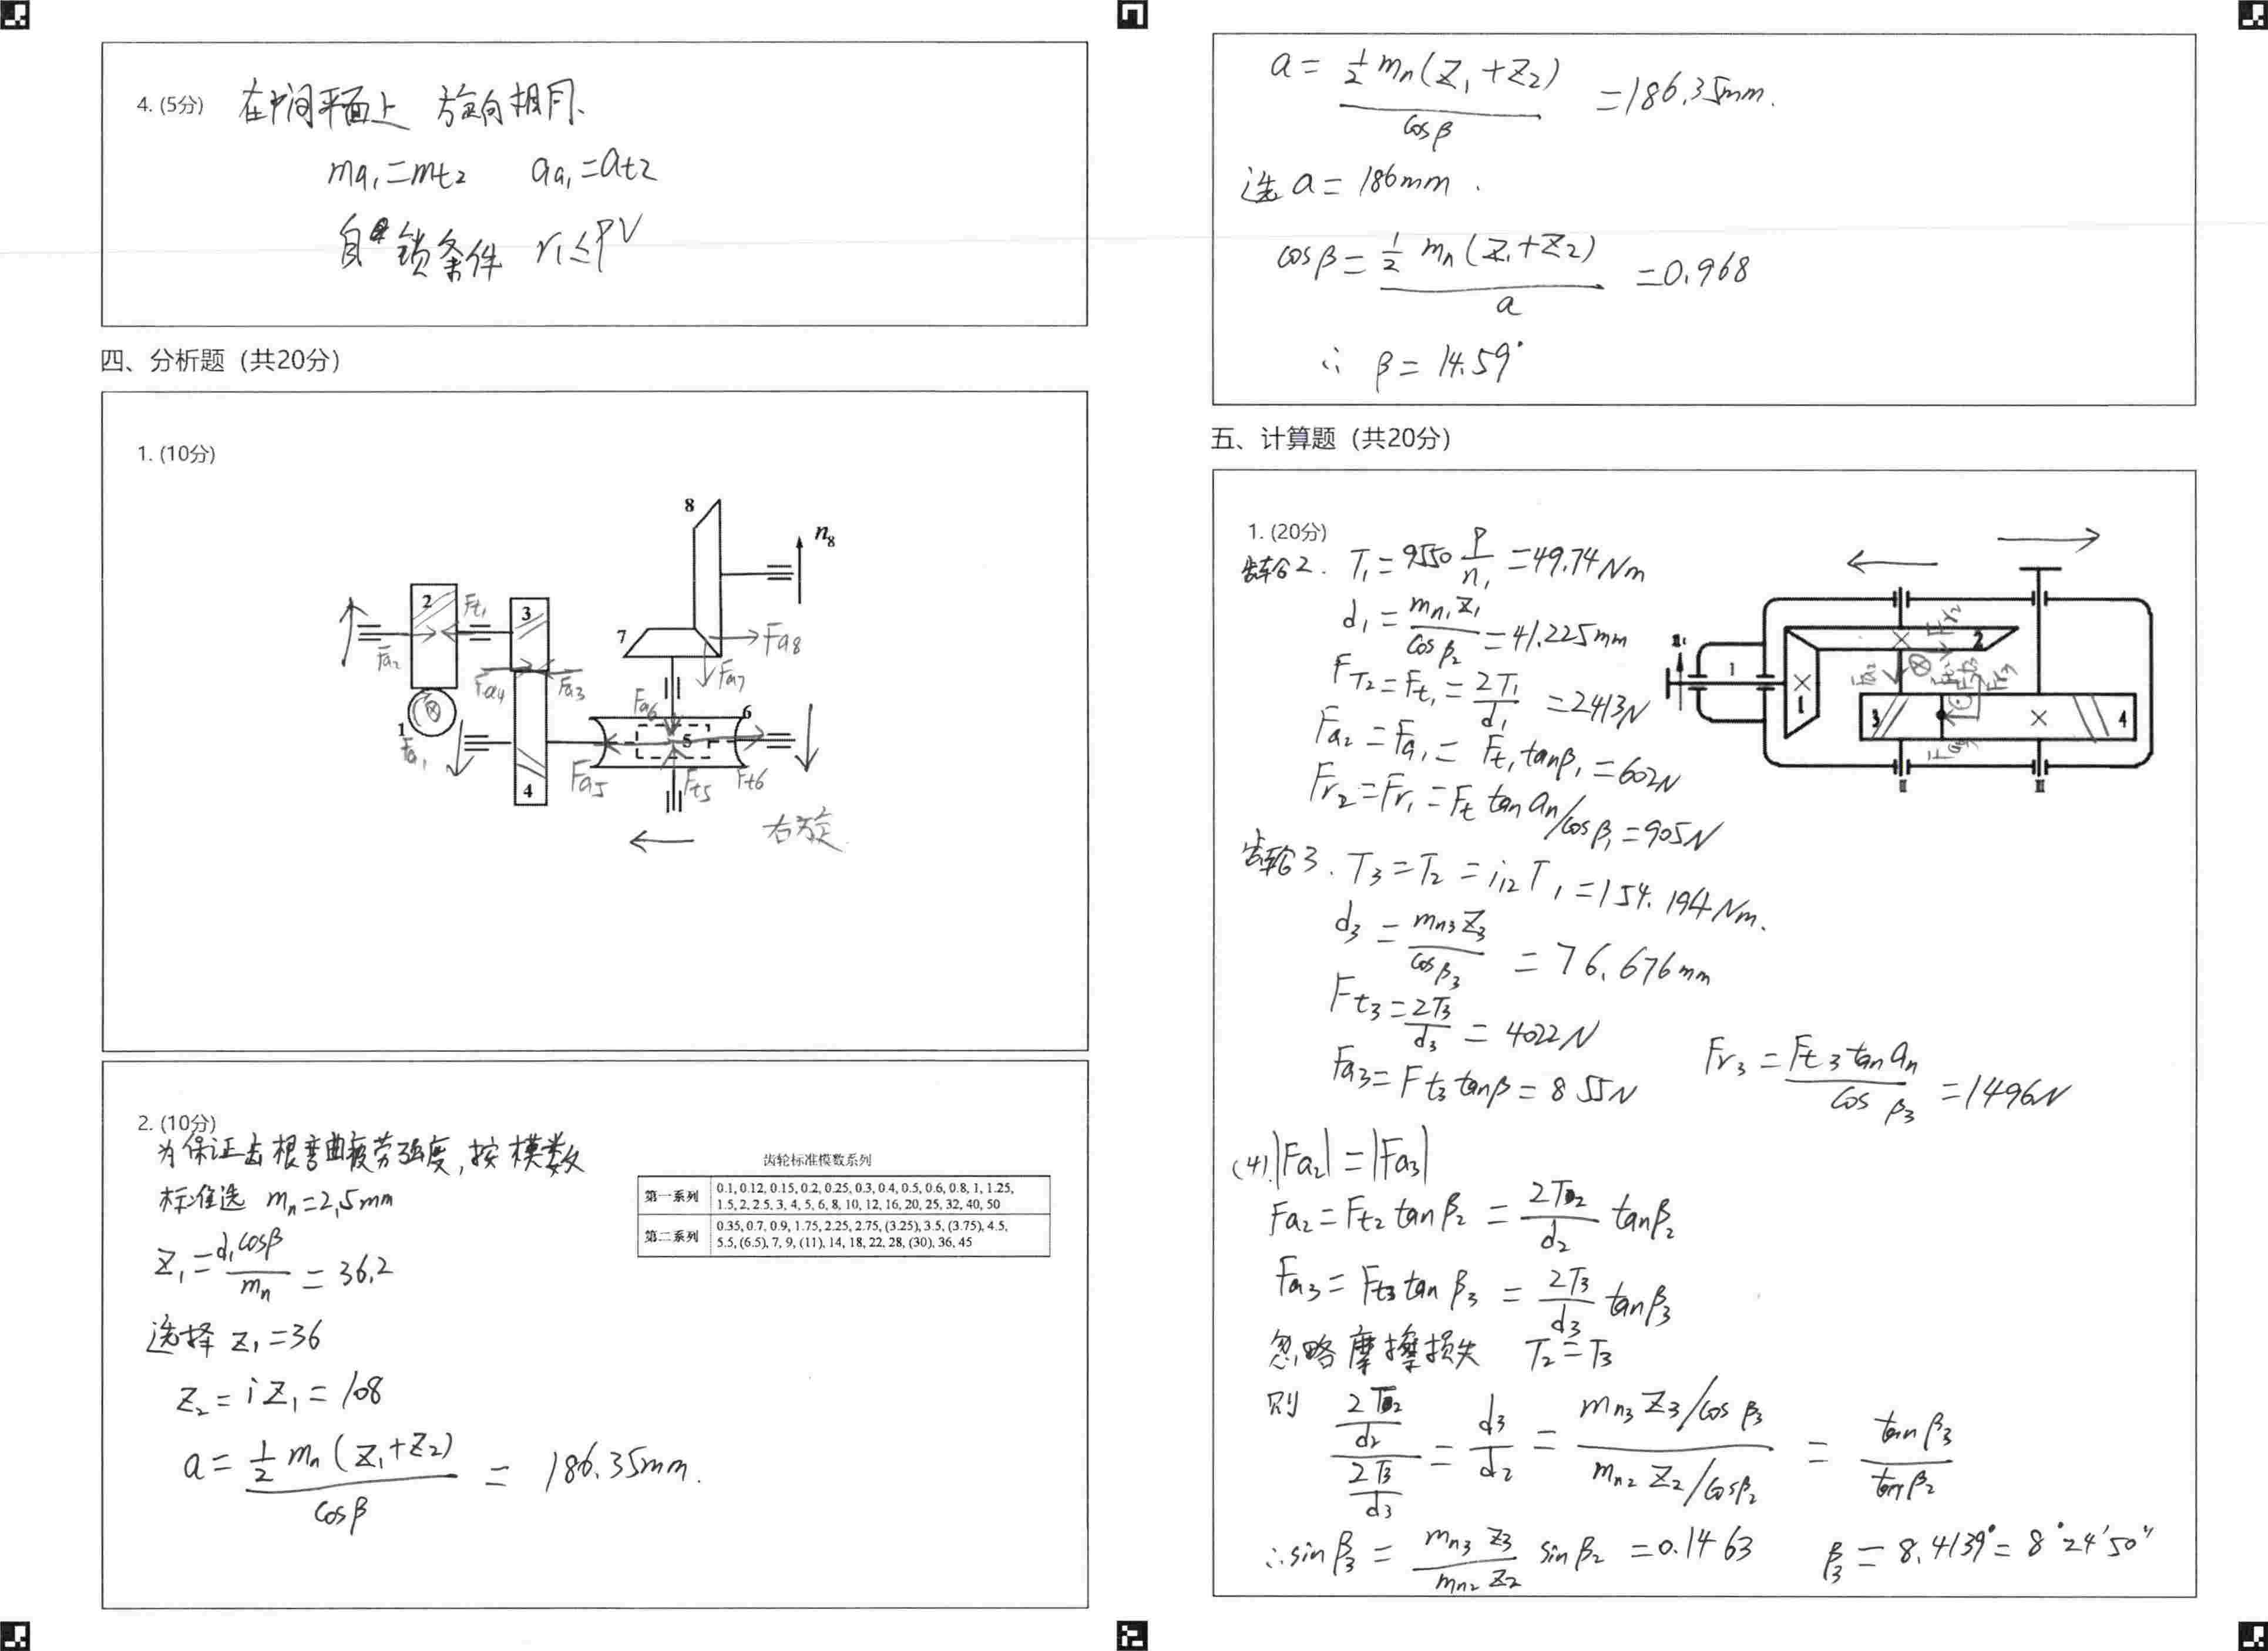 4. (5分) 在中间平面上 旋向相同、
ma₁=mt₂ αa₁=αt2
自锁条件 γ₁≤ρv
四、分析题（共20分）
1. (10分)
8
n₈
2
Ft₁
3
7
Fa8
Fa₂
Fa4
Fa3
Fa7
Fa6
6
1
Fa₁
5
Fa5
Ft5
Ft6
4
右旋
2. (10分)
为保证齿根弯曲疲劳强度，按模数
标准选 mₙ=2.5mm
Z₁=d₁cosβ/mₙ = 36.2
选择 Z₁=36
Z₂ = iZ₁ = 108
a = ½mₙ(Z₁+Z₂)/cosβ = 186.35mm.
齿轮标准模数系列
第一系列 0.1, 0.12, 0.15, 0.2, 0.25, 0.3, 0.4, 0.5, 0.6, 0.8, 1, 1.25,
1.5, 2, 2.5, 3, 4, 5, 6, 8, 10, 12, 16, 20, 25, 32, 40, 50
第二系列 0.35, 0.7, 0.9, 1.75, 2.25, 2.75, (3.25), 3.5, (3.75), 4.5,
5.5, (6.5), 7, 9, (11), 14, 18, 22, 28, (30), 36, 45
a = ½mₙ(Z₁+Z₂)/cosβ =186.35mm.
选 a = 186mm.
cosβ = ½mₙ(Z₁+Z₂)/a =0.968
∴ β = 14.59°
五、计算题（共20分）
1. (20分)
齿轮2. T₁ = 9550 P/n₁ =49.74Nm
d₁ = mn₁Z₁/cosβ₂ =41.225mm
FT₂ = Ft₁ = 2T₁/d₁ = 2413N
Fa₂ = Fa₁ = Ft₁tanβ₁ = 602N
Fr₂=Fr₁ = Ft tan αn/cosβ₁ = 905N
Ⅰ
1
2
3
4
Ⅱ
Ⅲ
Fr₂
Fa₂
Fr3
齿轮3. T3 = T2 = i₁₂T₁ =154.194Nm.
d3 = mn3Z3/cosβ3 = 76.676mm
Ft3=2T3/d3 = 4022N
Fa3= Ft3 tanβ = 855N
Fr3 = Ft3 tan αn/cos β3 =1496N
(4).|Fa₂| = |Fa3|
Fa₂=Ft₂ tanβ₂ = 2T₂/d₂ tanβ₂
Fa3= Ft3 tan β3 = 2T3/d3 tanβ3
忽略摩擦损失 T2=T3
则 (2T₂/d₂)/(2T3/d3) = d3/d₂ = (mn3 Z3/cos β3)/(mn2 Z2/cosβ₂) = tanβ3/tanβ₂
∴sinβ3 = mn3 Z3/mn2 Z2 sinβ₂ =0.1463 β3 = 8.4139°= 8°24′50″